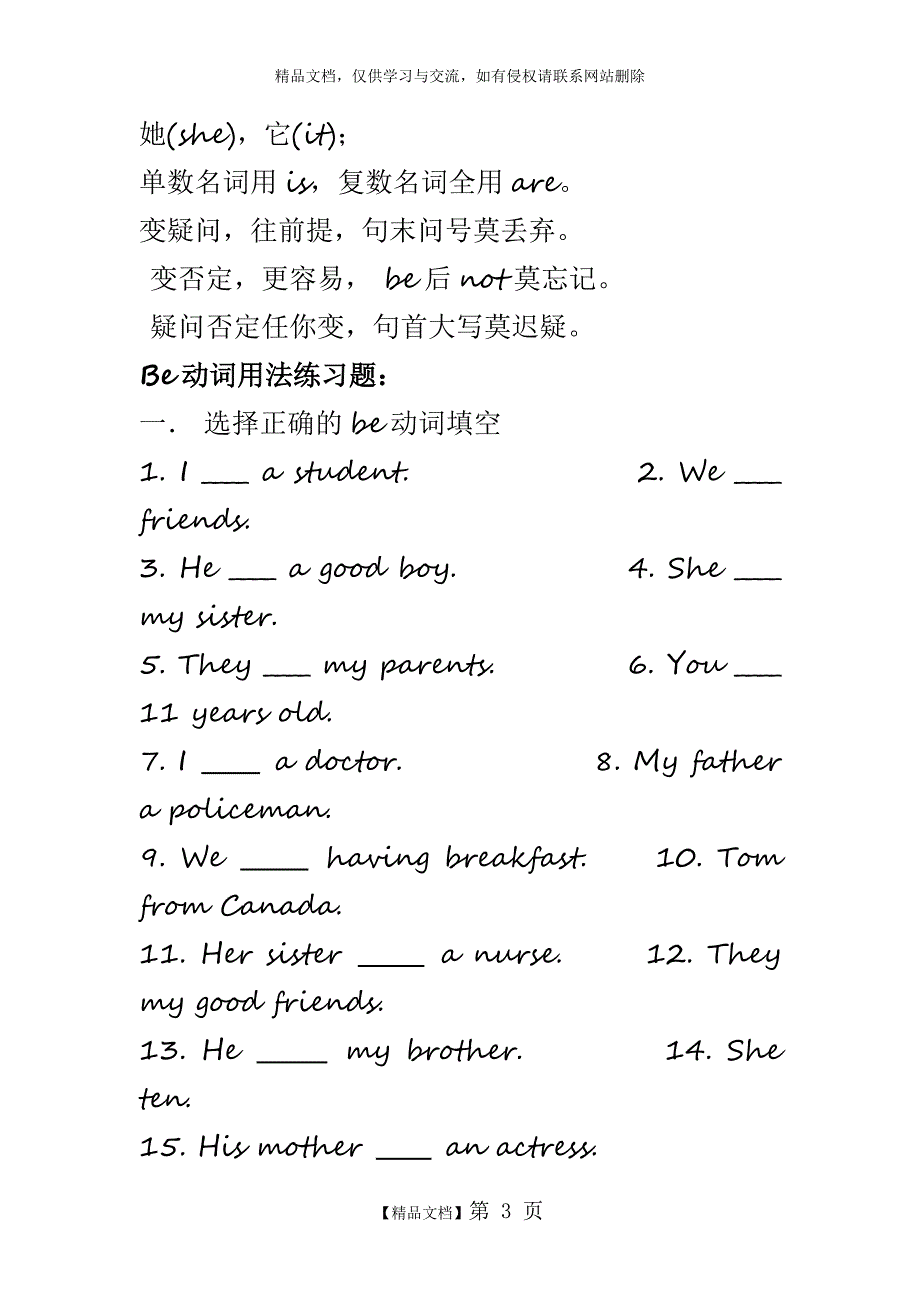 精品文档，仅供学习与交流，如有侵权请联系网站删除
她(she)，它(it)；
单数名词用 is，复数名词全用 are。
变疑问，往前提，句末问号莫丢弃。
变否定，更容易， be 后 not 莫忘记。
疑问否定任你变，句首大写莫迟疑。
Be 动词用法练习题：
一． 选择正确的 be 动词填空
1. I ____ a student. 2. We ____
friends.
3. He ____ a good boy. 4. She ____
my sister.
5. They ____ my parents. 6. You ____
11 years old.
7. I _____ a doctor. 8. My father
a policeman.
9. We ______ having breakfast. 10. Tom
from Canada.
11. Her sister ______ a nurse. 12. They
my good friends.
13. He ______ my brother. 14. She
ten.
15. His mother _____ an actress.
【精品文档】第 3 页